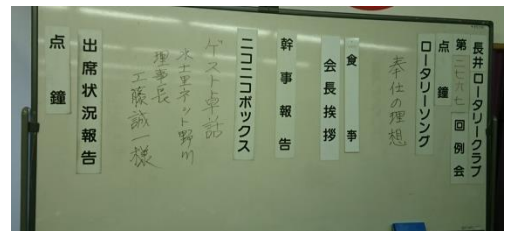 長井ロータリークラブ
第二七六七回例会
点鐘
ロータリーソング
奉仕の理想
食事
会長挨拶
幹事報告
ニコニコボックス
ゲスト卓話
水土里ネット野川
理事長
工藤誠一様
出席状況報告
点鐘